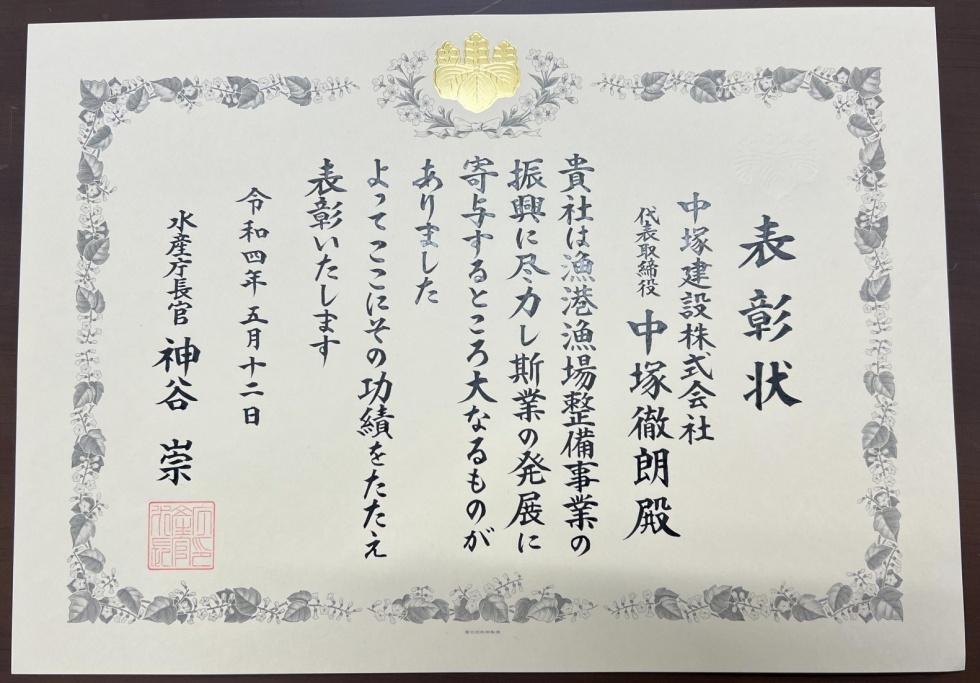 表彰状
中塚建設株式会社
代表取締役 中塚徹朗殿
貴社は漁港漁場整備事業の
振興に尽力し斯業の発展に
寄与するところ大なるものが
ありました
よってここにその功績をたたえ
表彰いたします
令和四年五月十二日
水産庁長官 神谷 崇